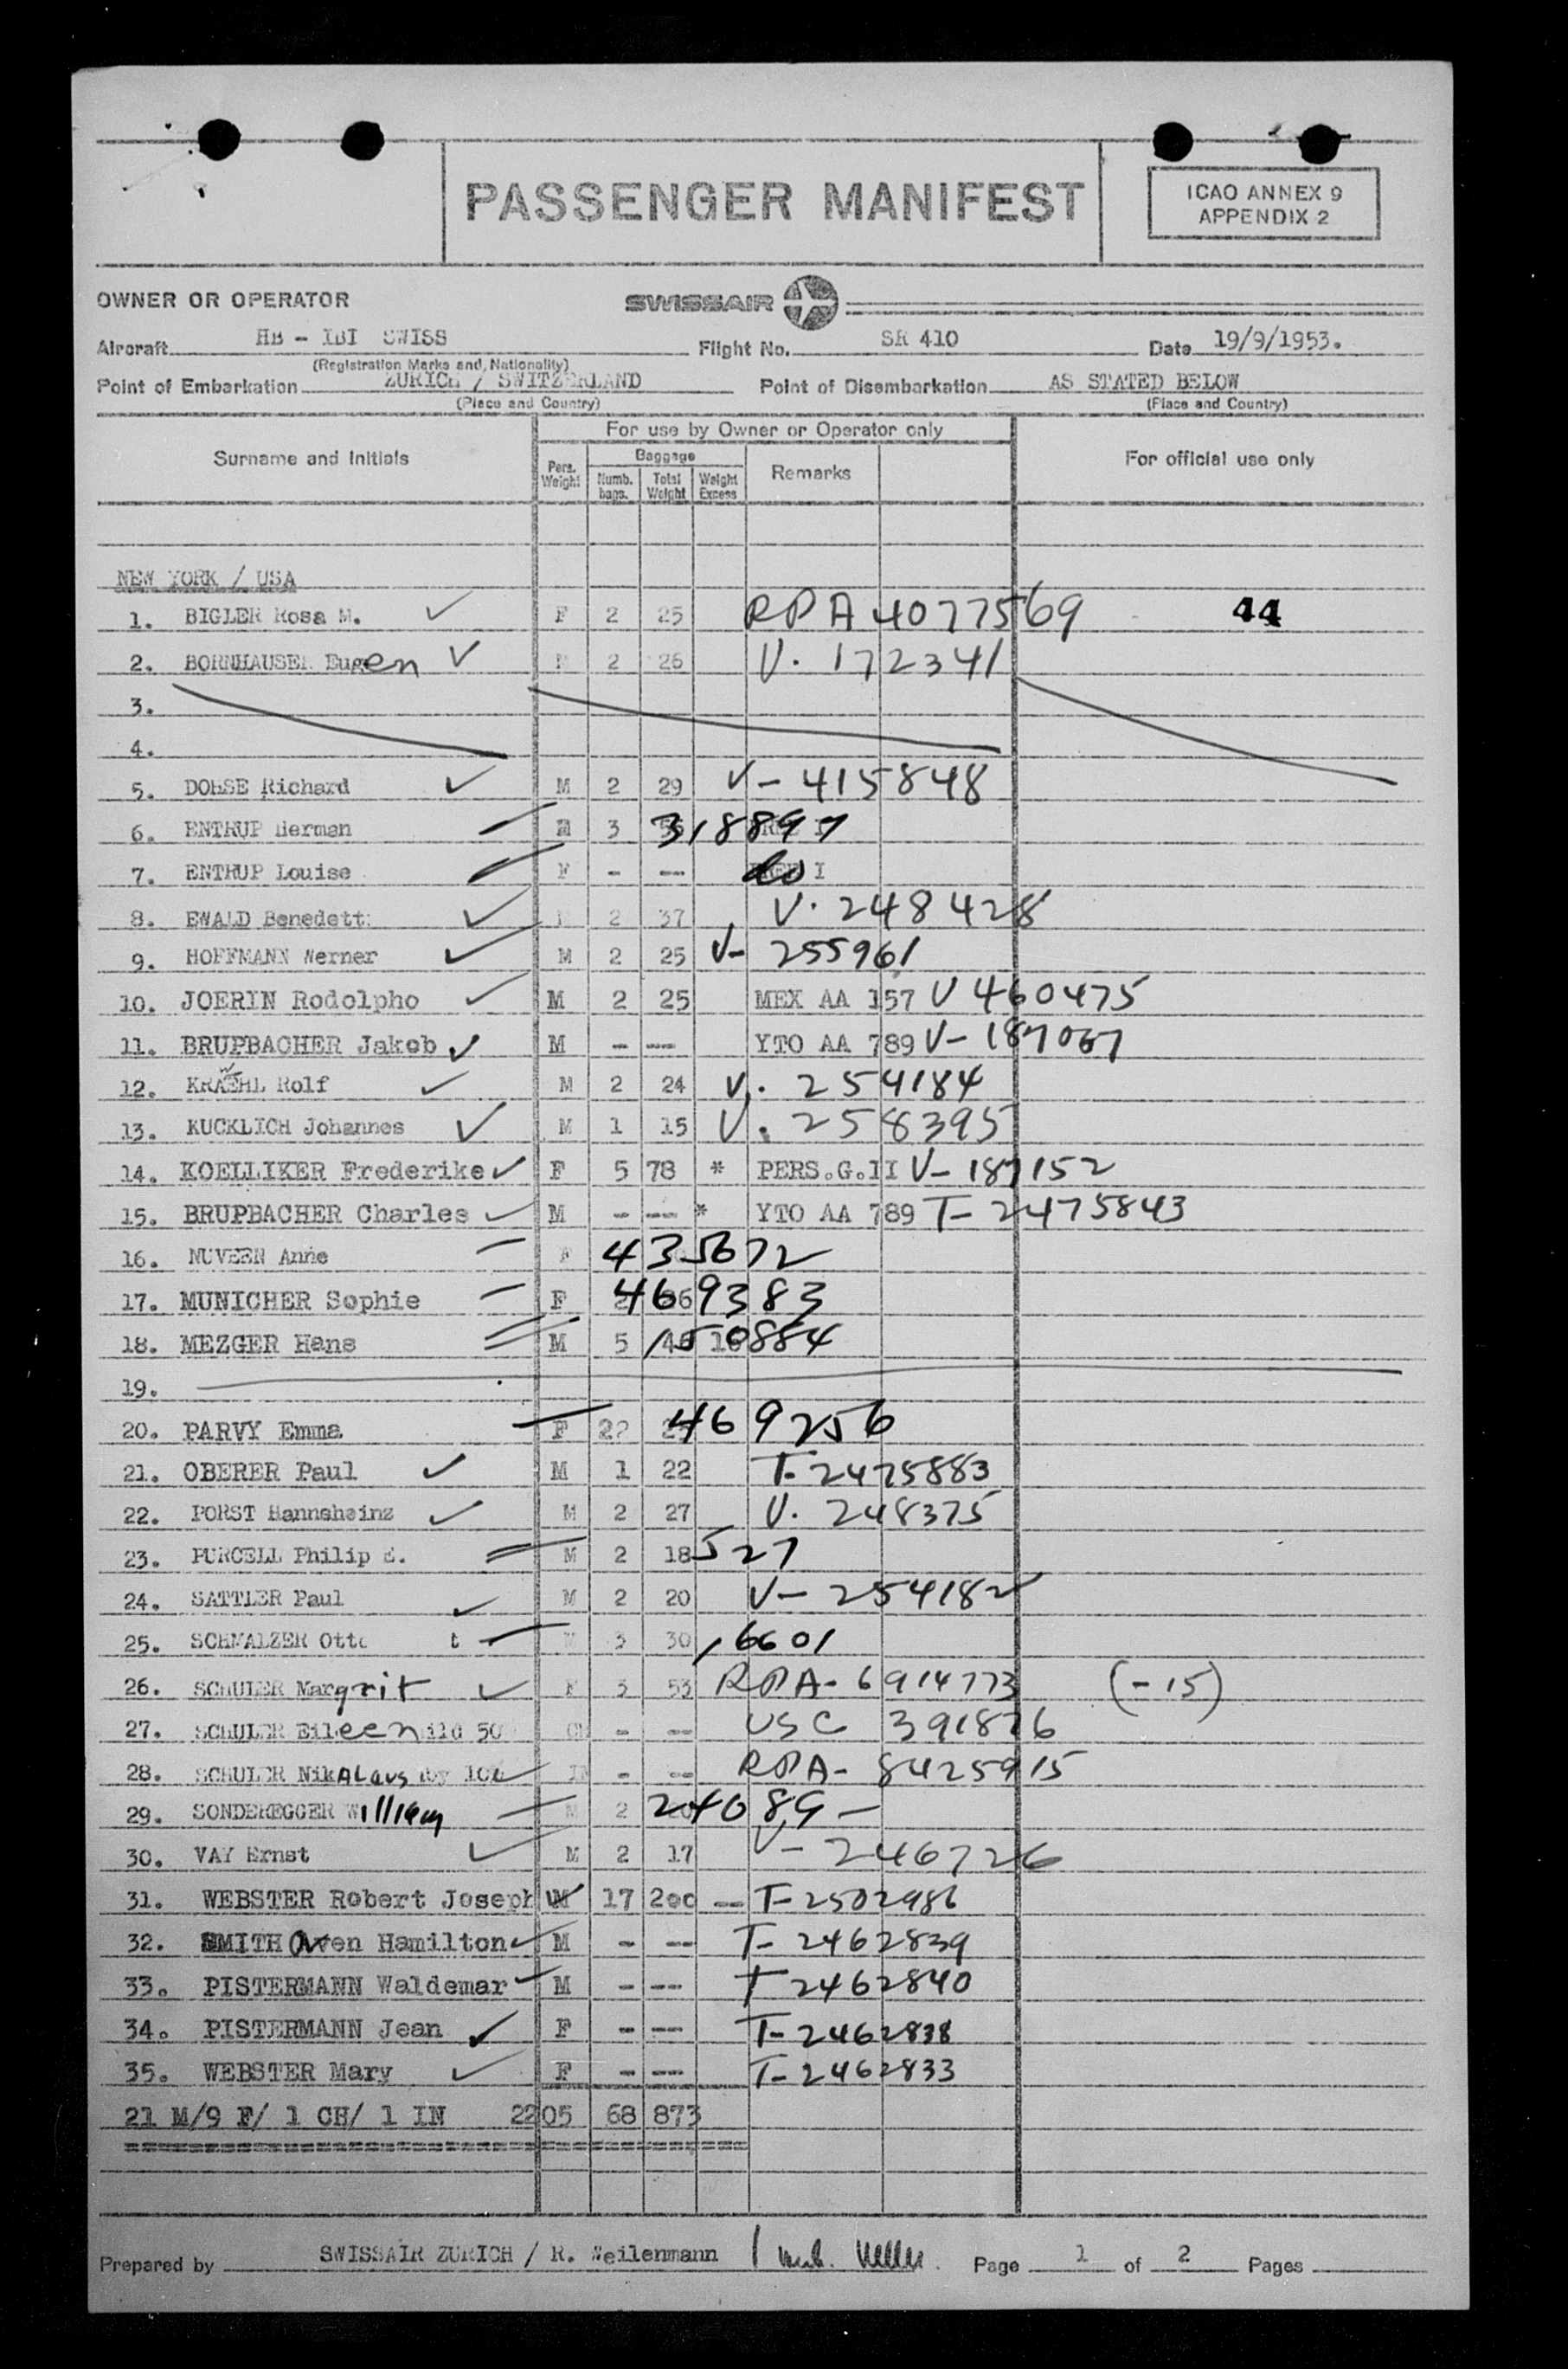 PASSENGER MANIFEST
ICAO ANNEX 9
APPENDIX 2
OWNER OR OPERATOR SWISSAIR
Aircraft HB - IBI SWISS Flight No. SR 410 Date 19/9/1953.
(Registration Marks and Nationality)
Point of Embarkation ZURICH / SWITZERLAND Point of Disembarkation AS STATED BELOW
(Place and Country) (Place and Country)
For use by Owner or Operator only
Surname and Initials Pers. Weight Baggage Remarks For official use only
Numb. bags. Total Weight Weight Excess
NEW YORK / USA
1. BIGLER Rosa M. ✓ F 2 25 RPA 4077569 44
2. BORNHAUSER Eugen ✓ M 2 26 V. 172341
3.
4.
5. DOHSE Richard ✓ M 2 29 V-415848
6. ENTRUP Herman M 3 318897
7. ENTRUP Louise F - -- do I
8. EWALD Benedett ✓ 2 37 V. 248428
9. HOFFMANN Werner ✓ M 2 25 V- 255961
10. JOERIN Rodolpho ✓ M 2 25 MEX AA 157 V 460475
11. BRUPBACHER Jakob ✓ M - --- YTO AA 789 V- 187067
12. KRAEHL Rolf ✓ M 2 24 V. 254184
13. KUCKLICH Johannes ✓ M 1 15 V. 258395
14. KOELLIKER Frederike ✓ F 5 78 * PERS.G.II V- 187152
15. BRUPBACHER Charles ✓ M - --- * YTO AA 789 T- 2475843
16. NUVEEN Anne F 435672
17. MUNICHER Sophie F 2 469383
18. MEZGER Hans M 5 150884
19.
20. PARVY Emma F 22 469256
21. OBERER Paul ✓ M 1 22 T- 2475883
22. PORST Hannsheinz ✓ M 2 27 V. 248375
23. PURCELL Philip E. M 2 18 527
24. SATTLER Paul ✓ M 2 20 V- 254182
25. SCHMALZER Otto t M 3 30 16601
26. SCHULER Margrit ✓ F 3 53 RPA- 6914773 (-15)
27. SCHULER Eileen ild 50 CH - -- USC 391876
28. SCHULER Nikalaus IN - -- RPA- 8425915
29. SONDEREGGER William M 2 24089-
30. VAY Ernst ✓ M 2 17 V- 246726
31. WEBSTER Robert Joseph M 17 200 -- T- 2502986
32. SMITH Owen Hamilton ✓ M - --- T- 2462839
33. PISTERMANN Waldemar ✓ M - --- T 2462840
34. PISTERMANN Jean ✓ F - --- T- 2462838
35. WEBSTER Mary ✓ F - --- T- 2462833
21 M/9 F/ 1 CH/ 1 IN 2205 68 873
Prepared by SWISSAIR ZURICH / R. Weilenmann Page 1 of 2 Pages